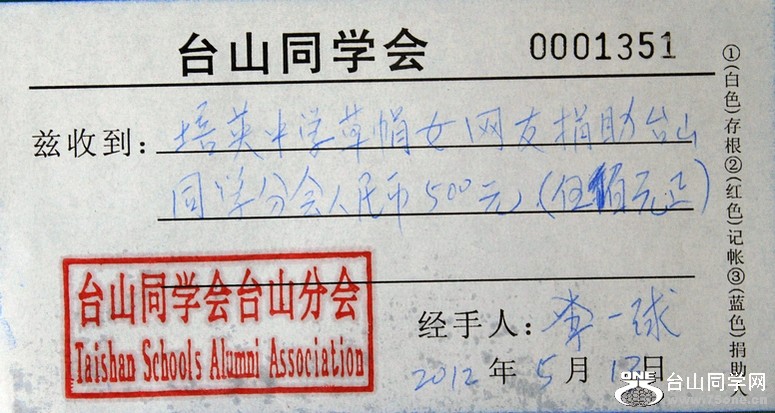 台山同学会
0001351
兹收到：培英中学草帽女网友捐助台山
同学分会人民币500元（伍佰元正）
台山同学会台山分会
Taishan Schools Alumni Association
经手人：李一球
2012年5月12日
①(白色)存根②(红色)记帐③(蓝色)捐助人
ONE
台山同学网